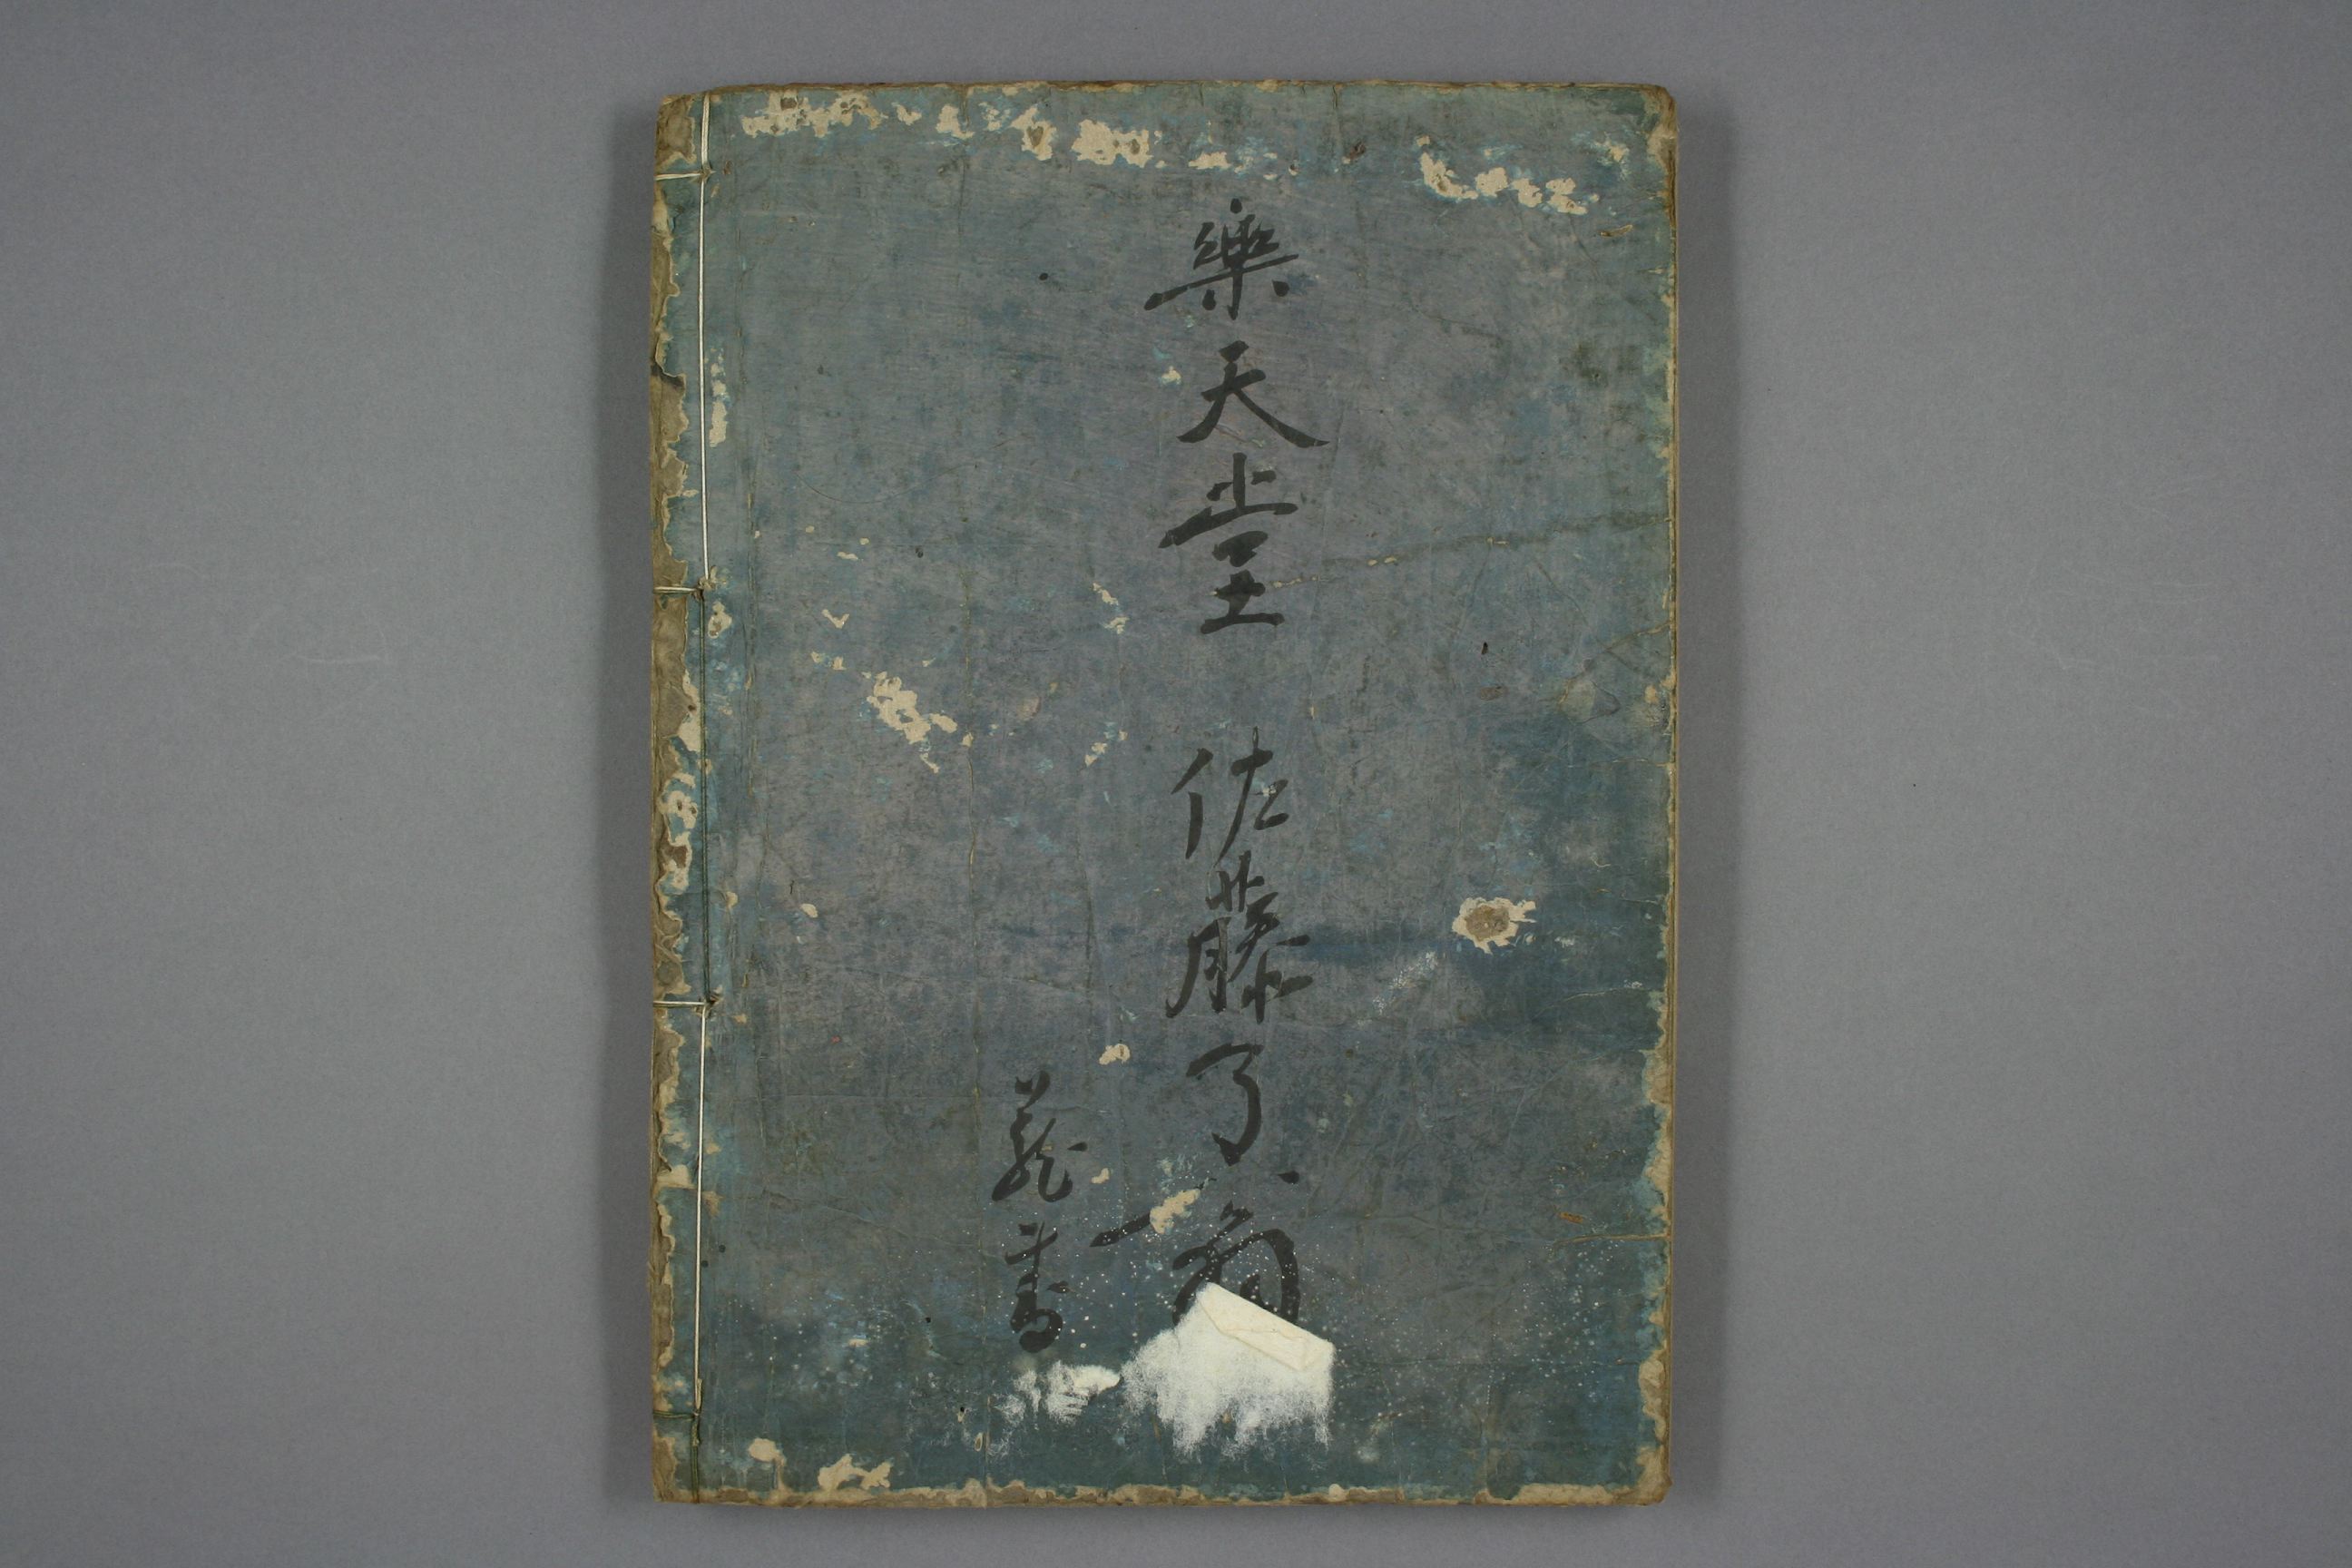 樂天堂 佐藤了翁
蔵書